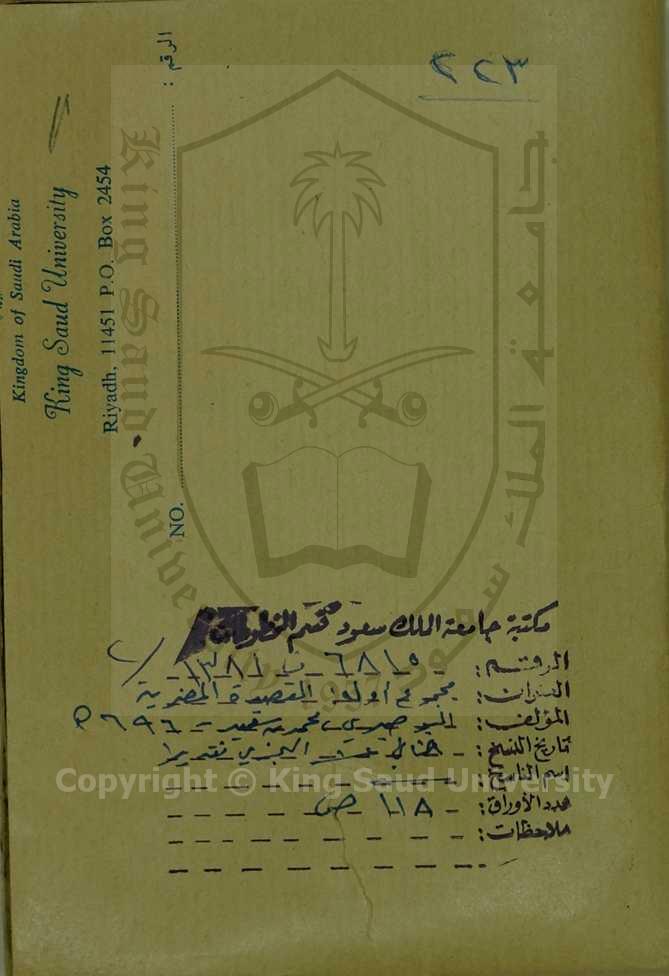 ٢٢٣
الرقم :
Kingdom of Saudi Arabia
King Saud University
Riyadh, 11451 P.O. Box 2454
NO.
جامعة الملك سعود
King Saud University
1957
مكتبة جامعة الملك سعود قسم المخطوطات
الرقم: ٦٨١٥
العنوان: مجموع أوله القصيدة المضرية
المؤلف: البوصيري، محمد بن سعيد - ٦٩٦ هـ
تاريخ النسخ: الهجري تقديرا
اسم الناسخ:
عدد الأوراق: ١١٨ ص
ملاحظات:
Copyright © King Saud University